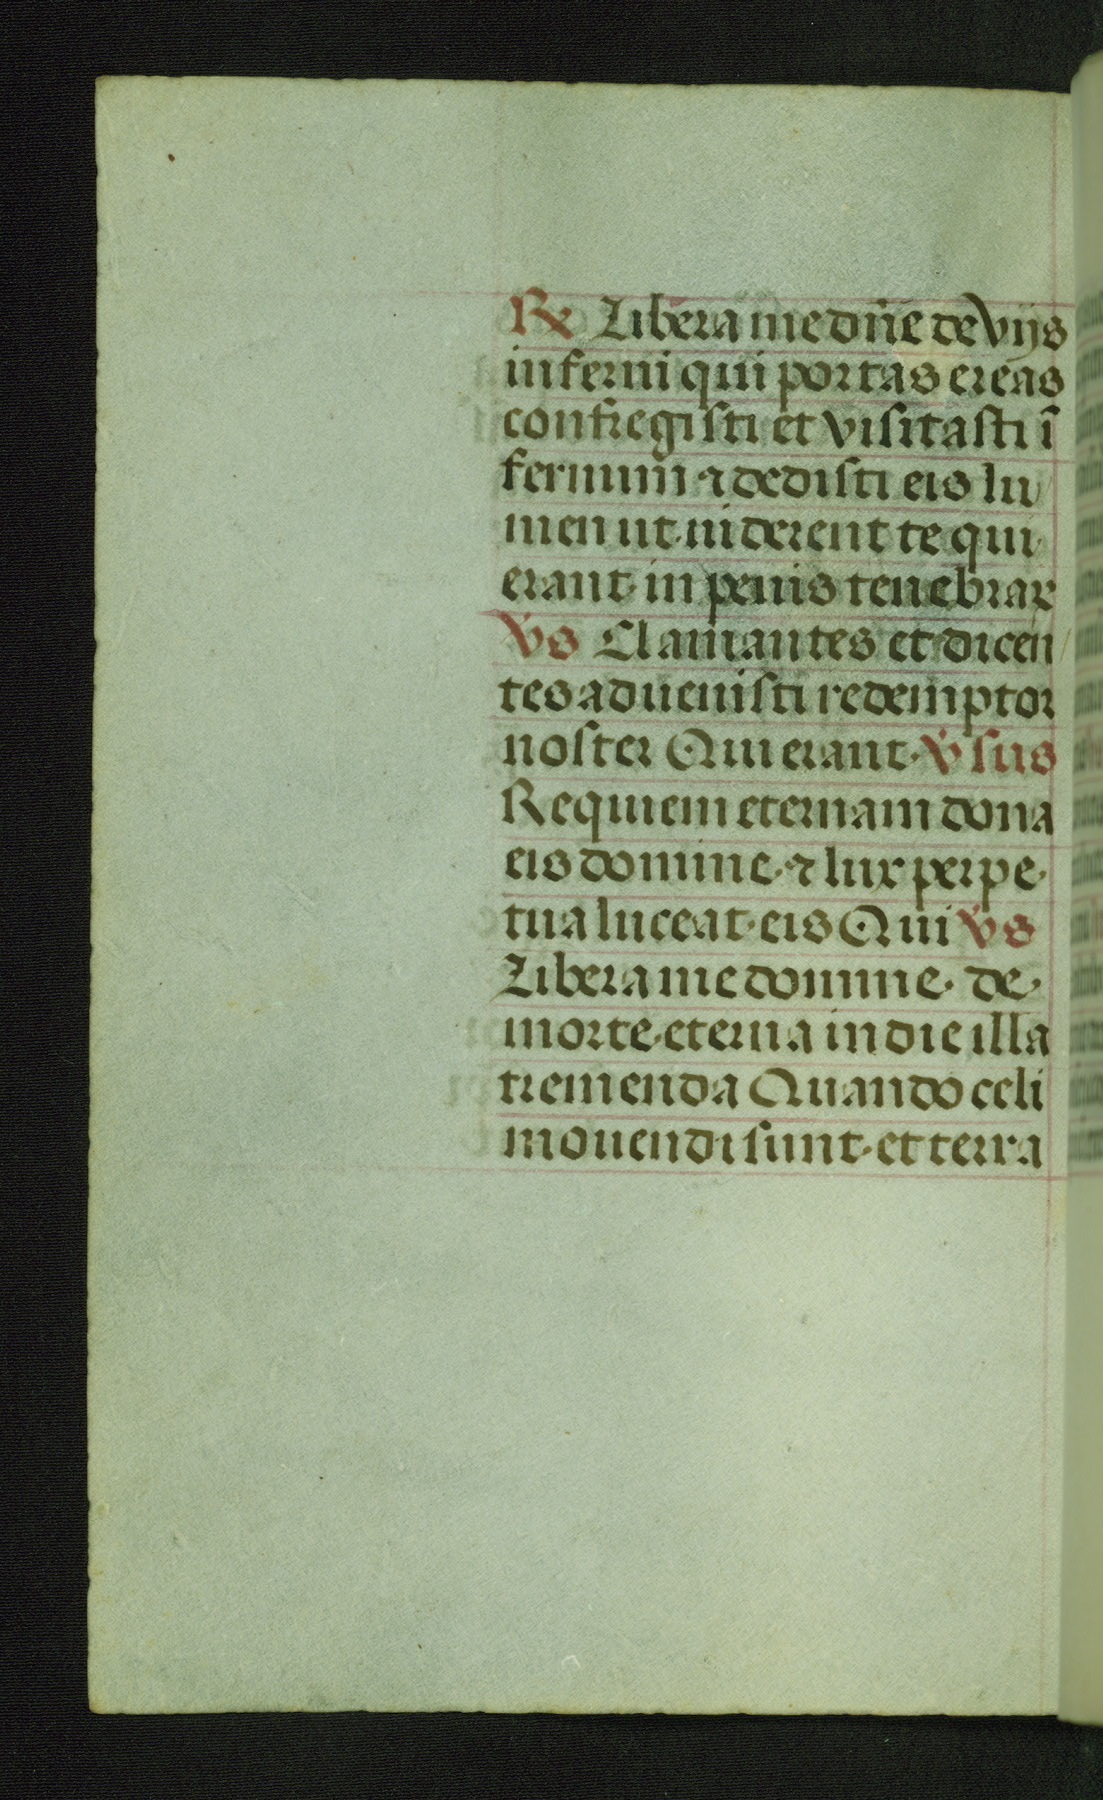 ℟ Libera me dñe de vijs
inferni qui portas ereas
confregisti et visitasti ī
fernum ⁊ dedisti eis lu
men ut uiderent te qui
erant in penis tenebraꝝ
v̇s Clamantes et dicen
tes aduenisti redemptor
noster Qui erant. v̇sus
Requiem eternam dona
eis domine. ⁊ lux perpe
tua luceat eis Qui v̇s
Libera me domine. de
morte eterna in die illa
tremenda Quando celi
mouendi sunt. et terra